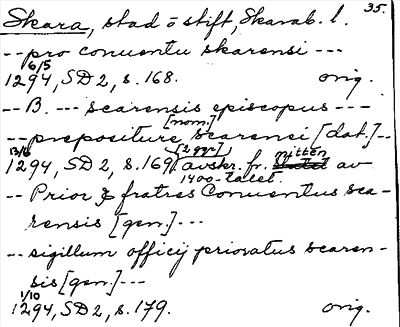 35.
Skara, stad o stift, Skarab. l.
-- pro conuentu skarensi ---
6/5
1294, SD 2, s. 168. orig.
-- B. --- scarensis episcopus ---
[nom.]
-- prepositure scarensi [dat.] --
13/6 [2 ggr]
1294, SD 2, s. 169. avskr. fr. mitten av
1400-talet.
-- Prior & fratres Conuentus sca-
rensis [gen.] ---
-- sigillum officij prioratus scaren-
sis [gen.] ---
1/10
1294, SD 2, s. 179. orig.